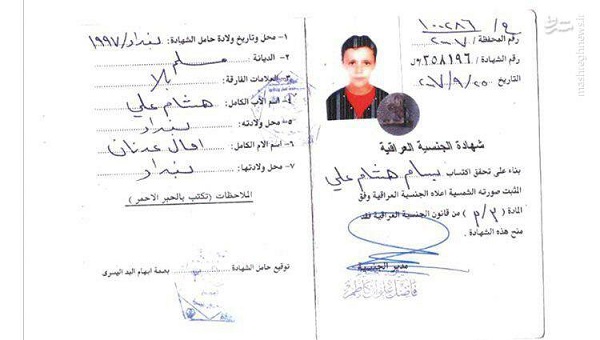 ١٠٠٢٨٦ / ٩
رقم المحفظة / ٢٠٠٧
رقم الشهادة / ٣٥٨١٩٦
التاريخ ٢٠٠٧/٩/٢٥
شهادة الجنسية العراقية
بناء على تحقق اكتساب بسام هشام علي
المثبت صورته الشمسية اعلاه الجنسية العراقية وفق
المادة (٣/م) من قانون الجنسية العراقية فقد
منح هذه الشهادة .
مدير الجنسية
١- محل وتاريخ ولادة حامل الشهادة: بغداد/١٩٩٧
٢- الديانة : مسلم
٣- العلامات الفارقة: بلا
٤- اسم الأب الكامل: هشام علي
٥- محل ولادته: بغداد
٦- اسم الام الكامل: عدنان
٧- محل ولادتها: بغداد
الملاحظات (تكتب بالحبر الاحمر)
توقيع حامل الشهادة
بصمة ابهام اليد اليسرى
mashreghnews.ir